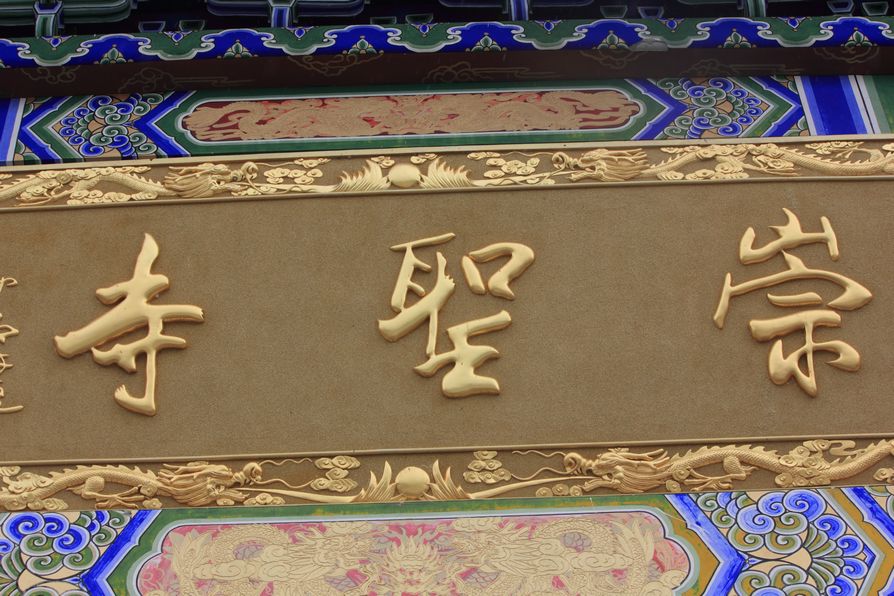 崇聖寺